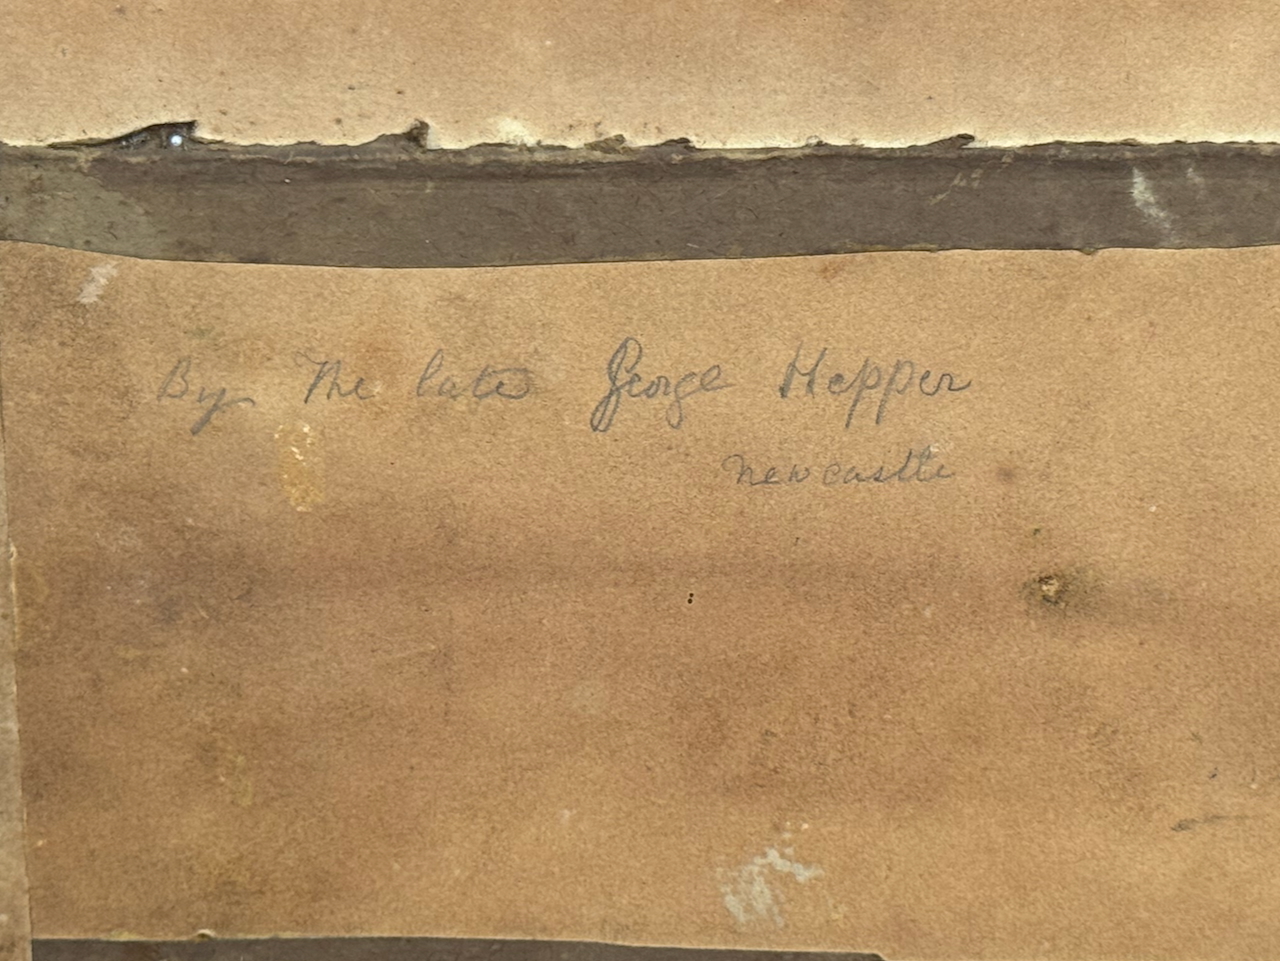 By The late George Hepper
Newcastle